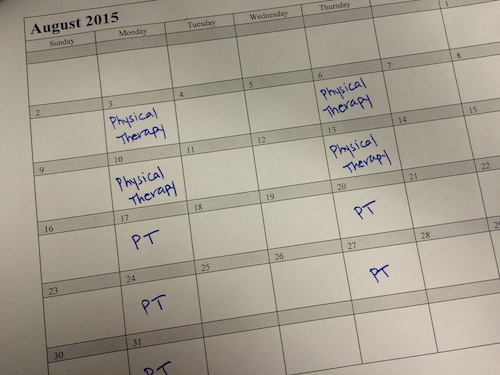 August 2015
Sunday Monday Tuesday Wednesday Thursday
1
2 3 4 5 6 7 8
Physical Physical
Therapy Therapy
9 10 11 12 13 14 15
Physical Physical
Therapy Therapy
16 17 18 19 20 21 22
PT PT
23 24 25 26 27 28 29
PT PT
30 31
PT